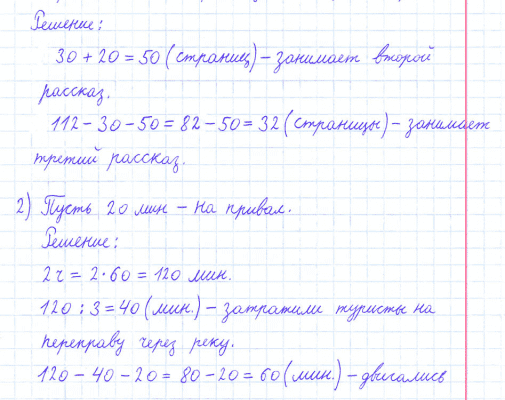 Решение:
30 + 20 = 50 (страниц) – занимает второй
рассказ.
112 – 30 – 50 = 82 – 50 = 32 (страницы) – занимает
третий рассказ.
2) Пусть 20 мин – на привал.
Решение:
2 ч = 2·60 = 120 мин.
120 : 3 = 40 (мин.) – затратили туристы на
переправу через реку.
120 – 40 – 20 = 80 – 20 = 60 (мин.) – двигались